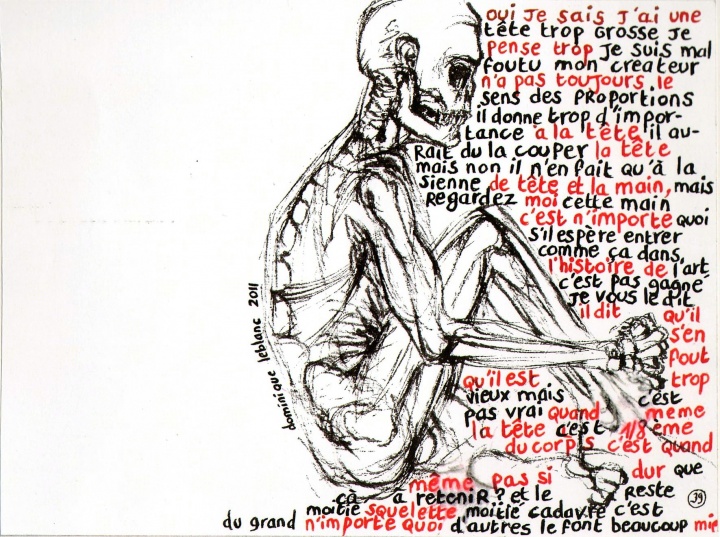 oui je sais j'ai une
tête trop grosse je
pense trop je suis mal
foutu mon createur
n'a pas toujours le
sens des proportions
il donne trop d'impor-
tance a la tête il au-
rait du la couper la tête
mais non il n'en fait qu'à la
sienne de tête et la main, mais
regardez moi cette main
c'est n'importe quoi
s'il espère entrer
comme ça dans,
l'histoire de l'art
c'est pas gagné
je vous le dit
il dit qu'il
s'en
fout
qu'il est trop
vieux mais c'est
pas vrai quand meme
la tête c'est 1/8 ème
du corps c'est quand
même pas si dur que
çà à retenir ? et le reste
moitié squelette moitié cadavre c'est
du grand n'importe quoi d'autres le font beaucoup
dominique leblanc 2011